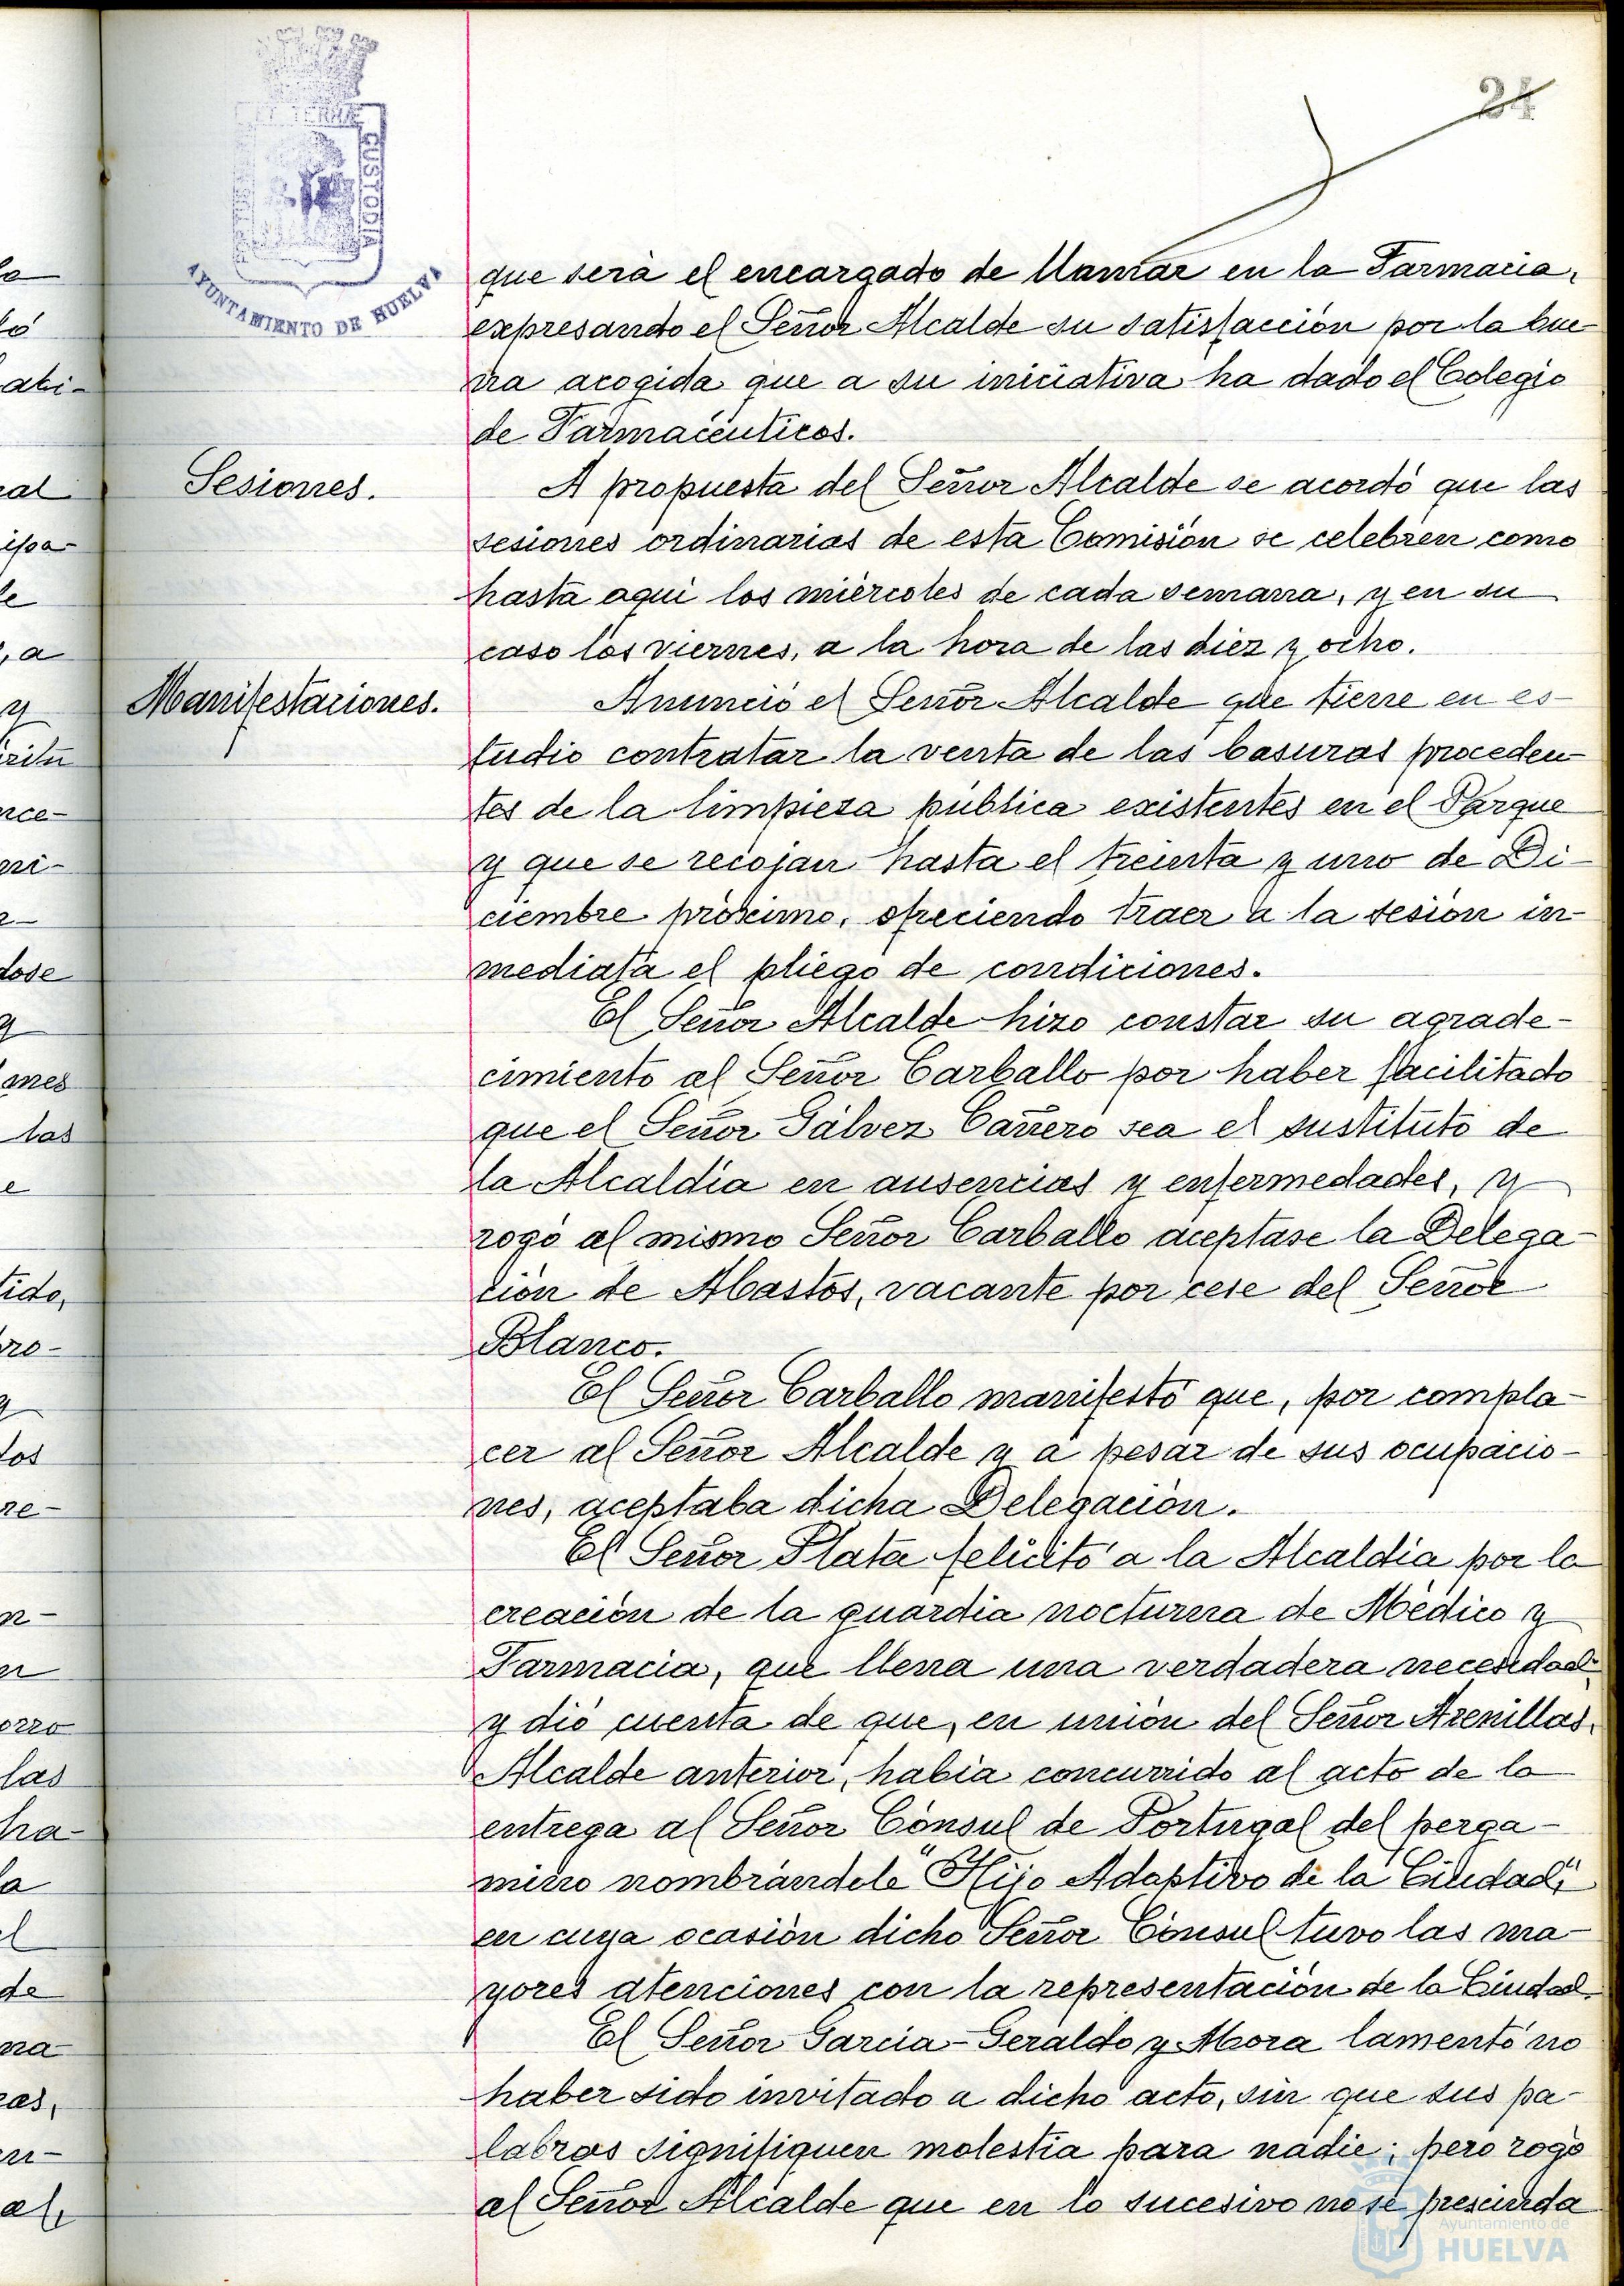 24
TERRÆ
CUSTODIA
AYUNTAMIENTO DE HUELVA
que será el encargado de llamar en la Farmacia,
expresando el Señor Alcalde su satisfacción por la bue-
na acogida que a su iniciativa ha dado el Colegio
de Farmacéuticos.
Sesiones.
A propuesta del Señor Alcalde se acordó que las
sesiones ordinarias de esta Comisión se celebren como
hasta aqui los miércoles de cada semana, y en su
caso los viernes, a la hora de las diez y ocho.
Manifestaciones.
Anunció el Señor Alcalde que tiene en es-
tudio contratar la venta de las basuras proceden-
tes de la limpieza pública existentes en el Parque
y que se recojan hasta el treinta y uno de Di-
ciembre próximo, ofreciendo traer a la sesión in-
mediata el pliego de condiciones.
El Señor Alcalde hizo constar su agrade-
cimiento al Señor Carballo por haber facilitado
que el Señor Gálvez Cañero sea el sustituto de
la Alcaldía en ausencias y enfermedades, y
rogó al mismo Señor Carballo aceptase la Delega-
ción de Abastos, vacante por cese del Señor
Blanco.
El Señor Carballo manifestó que, por compla-
cer al Señor Alcalde y a pesar de sus ocupacio-
nes, aceptaba dicha Delegación.
El Señor Plata felicitó a la Alcaldia por la
creación de la guardia nocturna de Médico y
Farmacia, que llena una verdadera necesidad,
y dió cuenta de que, en unión del Señor Arenillas,
Alcalde anterior, habia concurrido al acto de la
entrega al Señor Cónsul de Portugal del perga-
mino nombrándole "Hijo Adoptivo de la Ciudad",
en cuya ocasión dicho Señor Cónsul tuvo las ma-
yores atenciones con la representación de la Ciudad.
El Señor Garcia-Geraldo y Mora lamentó no
haber sido invitado a dicho acto, sin que sus pa-
labras signifiquen molestia para nadie; pero rogó
al Señor Alcalde que en lo sucesivo no se prescinda
Ayuntamiento de
HUELVA